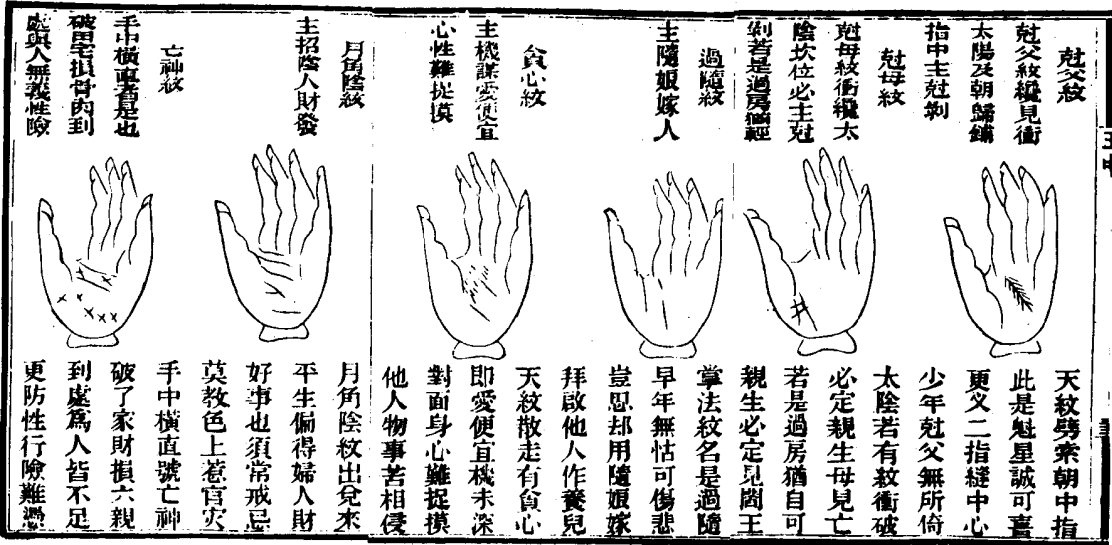 尅父紋
尅父紋纔見衝
太陽及朝歸鋪
指中主尅剝
尅母紋
尅母紋衝纔太
陰坎位必主尅
剝若是過房猶輕
過隨紋
主隨娘嫁人
貪心紋
主機謀愛便宜
心性難捉摸
月角陰紋
主招陰人財發
亡神紋
手中橫直者是也
破田宅損骨肉到
處與人無義性險
天紋劈索朝中指
此是魁星誠可喜
更义二指縫中心
少年尅父無所倚
太陰若有紋衝破
必定親生母見亡
若是過房猶自可
親生必定見閻王
掌法紋名是過隨
早年無怙可傷悲
豈思却用隨娘嫁
拜啟他人作養兒
天紋散走有貪心
即愛便宜機未深
對面身心難捉摸
他人物事苦相侵
月角陰紋出兌來
平生偏得婦人財
好事也須常戒忌
莫教色上惹官灾
手中橫直號亡神
破了家財損六親
到處為人皆不足
更防性行險難憑